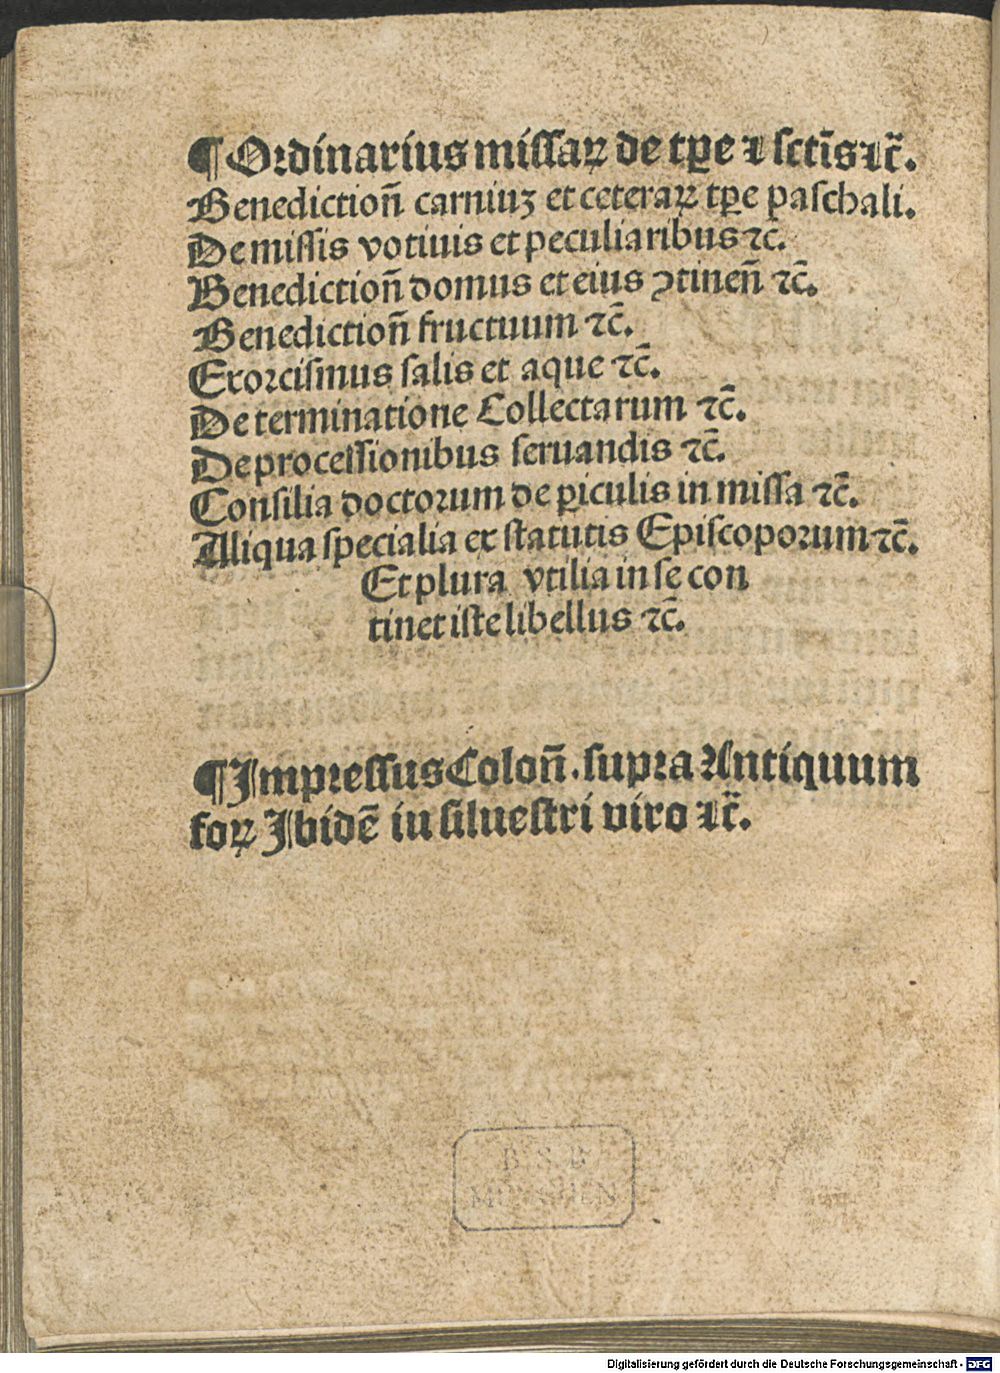 ¶Ordinarius missaꝝ de tp̄e ⁊ sctīs ⁊c̄.
Benediction̄ carniuꝫ et ceteraꝝ tp̄e paschali.
De missis votiuis et peculiaribus ⁊c̄.
Benediction̄ domus et eius ꝯtinen̄ ⁊c̄.
Benediction̄ fructuum ⁊c̄.
Exorcismus salis et aque ⁊c̄.
De terminatione Collectarum ⁊c̄.
De processionibus seruandis ⁊c̄.
Consilia doctorum de ꝑiculis in missa ⁊c̄.
Aliqua specialia ex statutis Episcoporum ⁊c̄.
Et plura vtilia in se con
tinet iste libellus ⁊c̄.
¶Impressus Colon̄. supra Antiquum
foꝝ Ibidē iu siluestri viro ⁊c̄.
B S B
MÜNCHEN
Digitalisierung gefördert durch die Deutsche Forschungsgemeinschaft - DFG